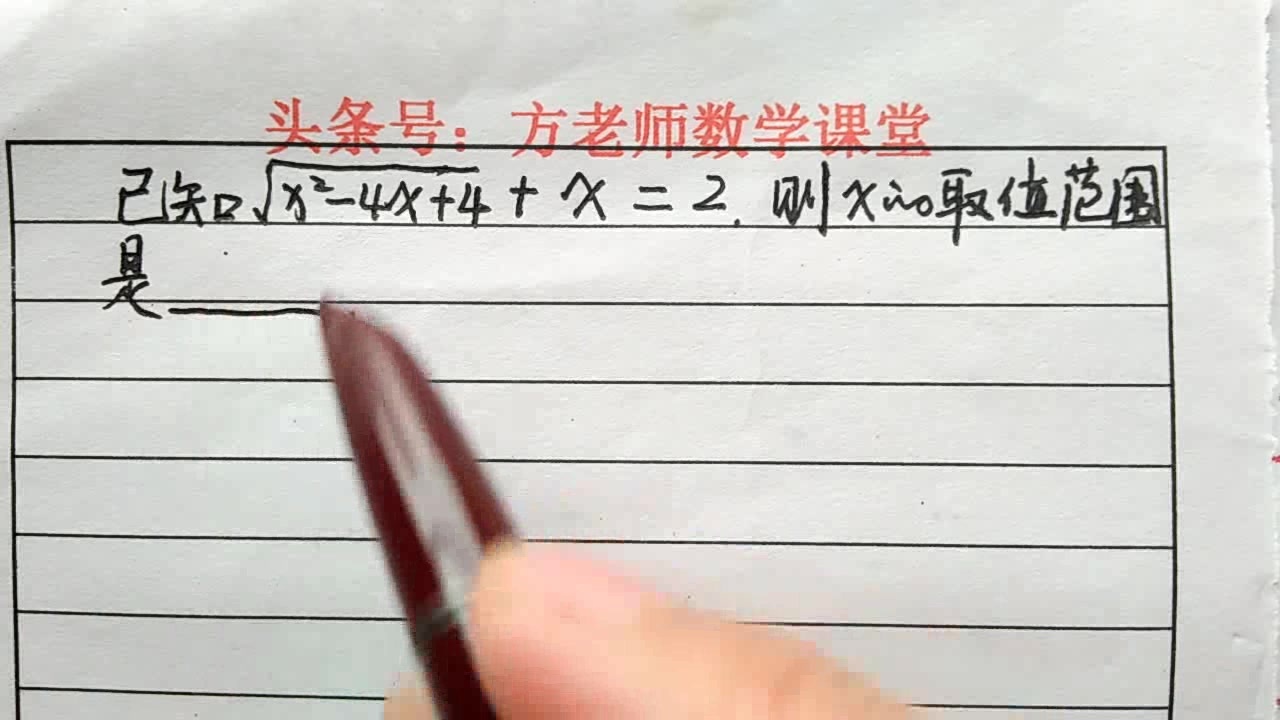 头条号：方老师数学课堂
已知√(x²-4x+4) + x = 2. 则x的取值范围
是______